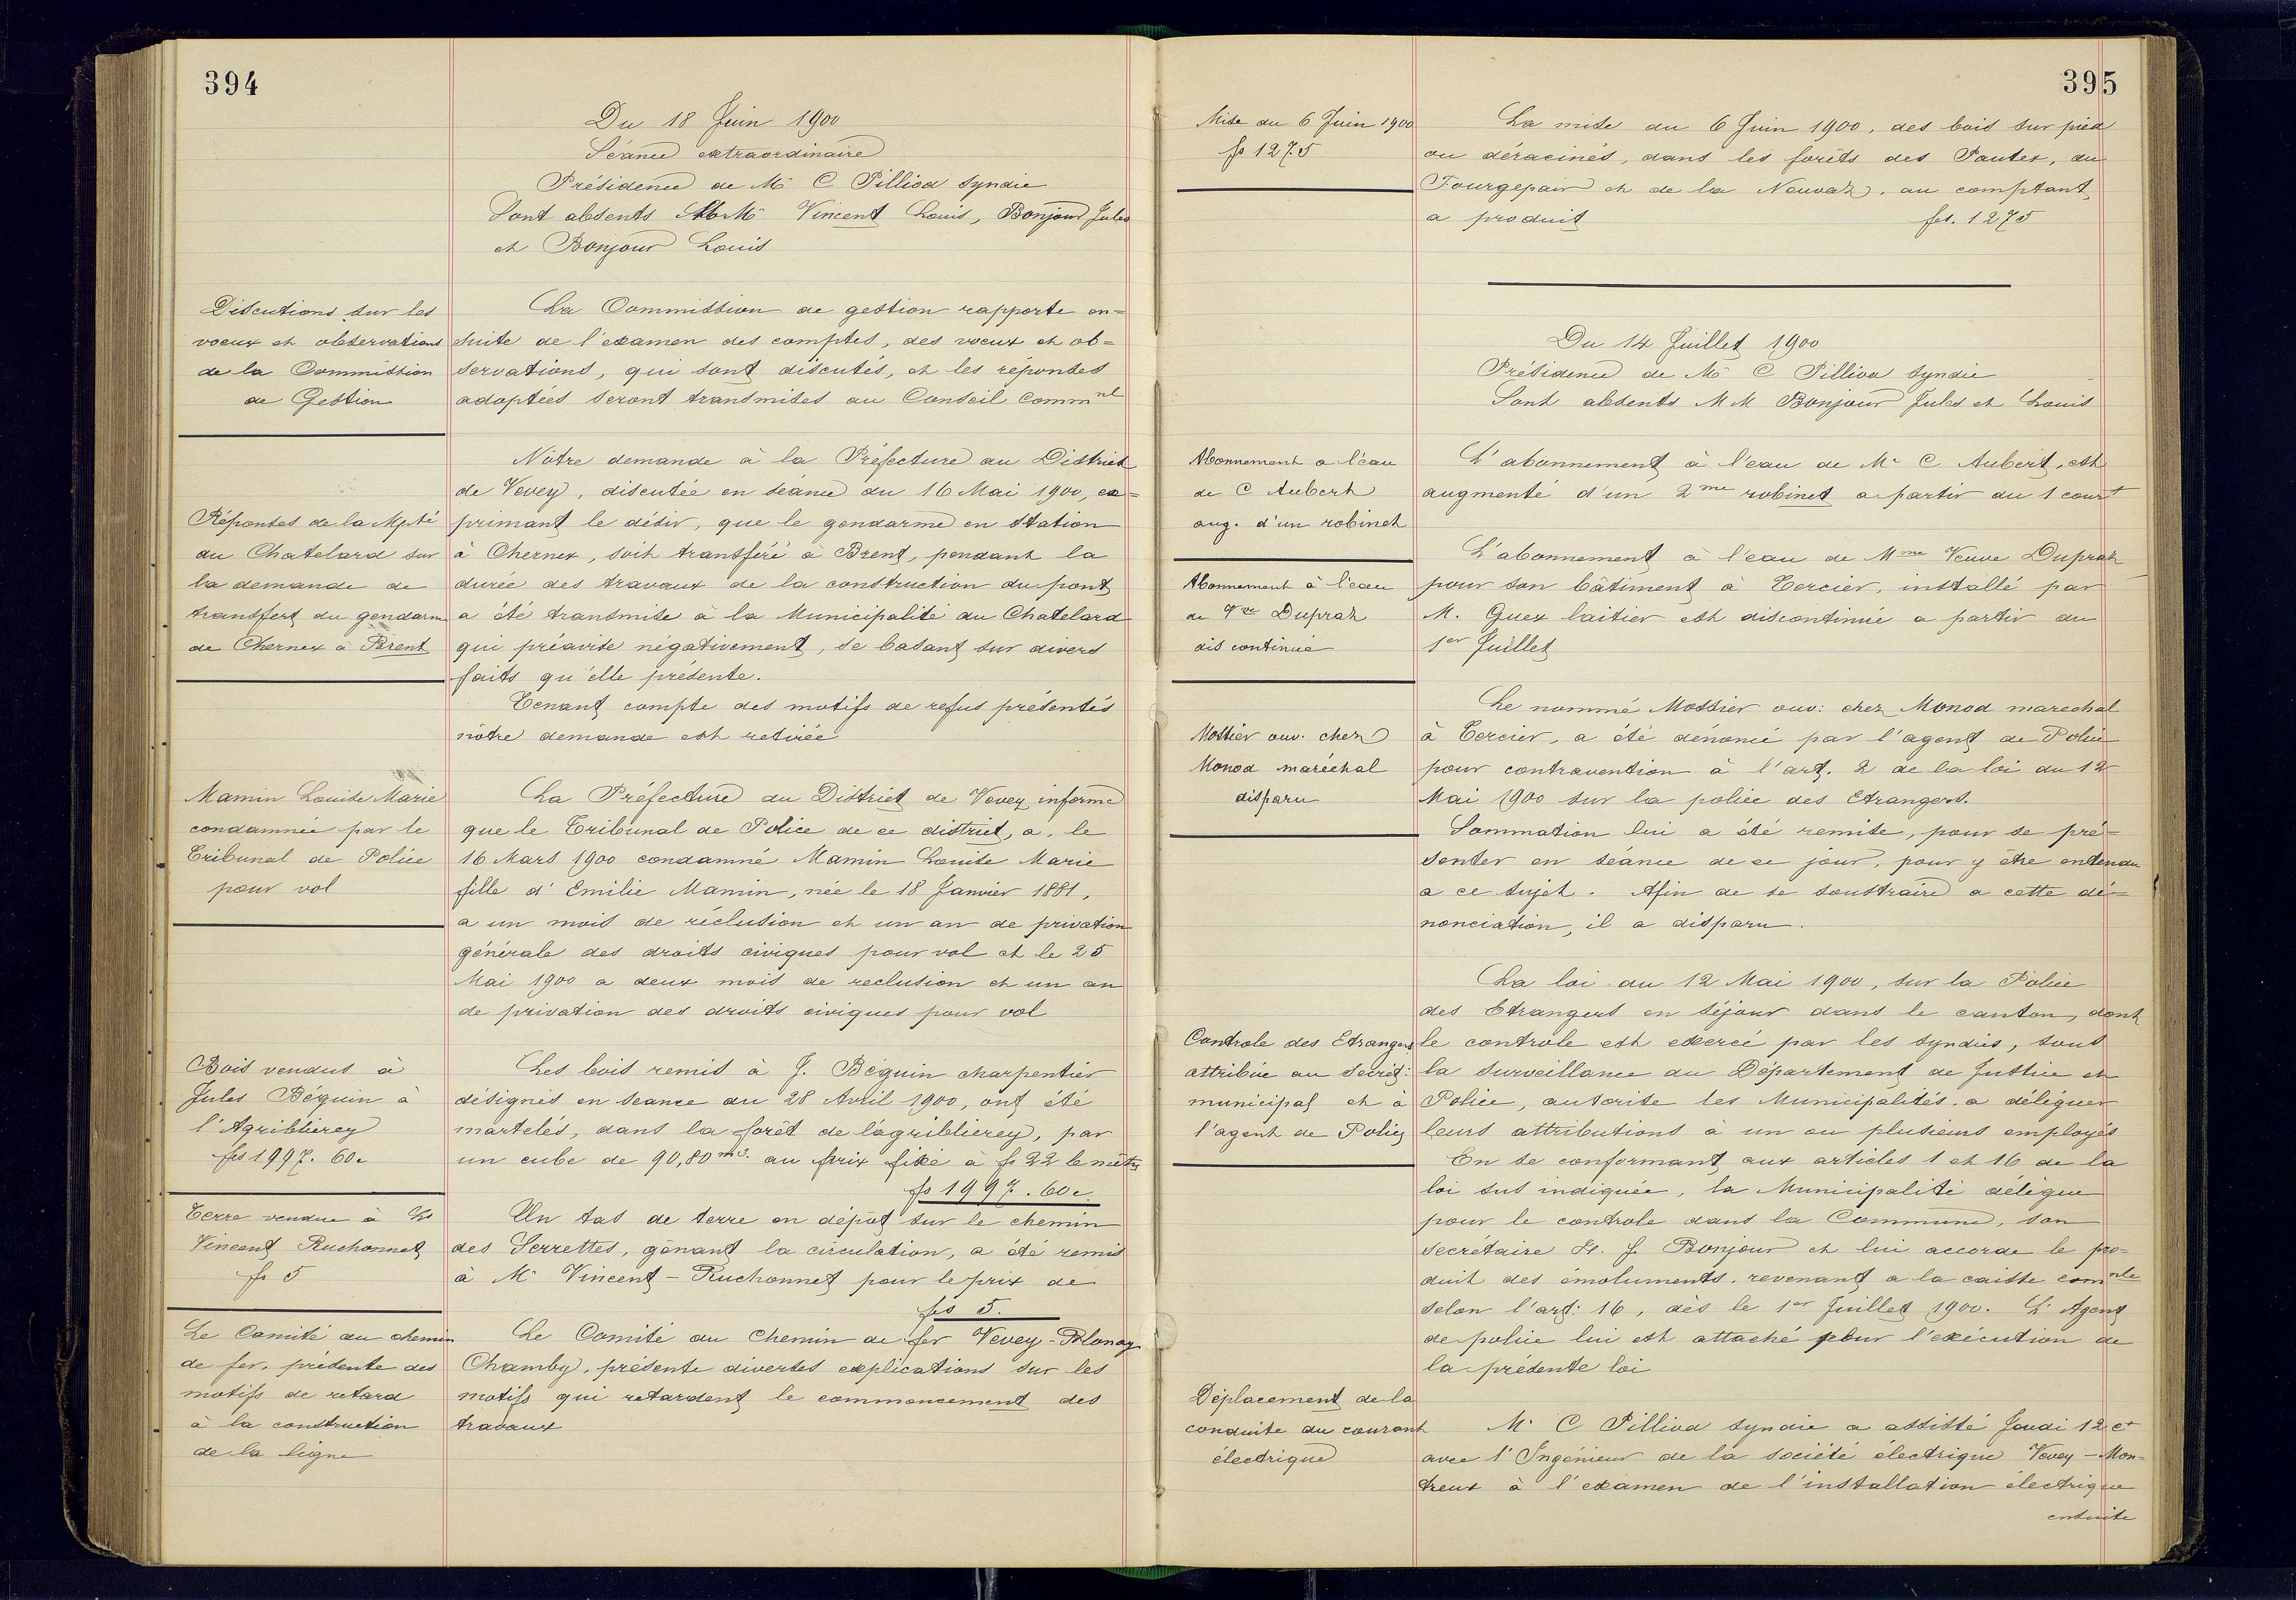 394
Du 18 Juin 1900
Séance extraordinaire
Présidence de Mr C Pilliod Syndic
Sont absents MM Vincent Louis, Bonjour Jules
et Bonjour Louis
Discutions sur les
voeux et observations
de la Commission
de Gestion
La Commission de gestion rapporte en=
suite de l'examen des comptes, des voeux et ob=
servations, qui sont discutés, et les réponses
adoptées seront transmises au Conseil Commnl
Réponses de la Mpté
du Chatelard sur
la demande de
transfert du gendarme
de Chernex à Brent
Nôtre demande à la Préfecture du District
de Vevey, discutée en séance du 16 Mai 1900, ex=
primant le désir, que le gendarme en station
à Chernex, soit transféré à Brent, pendant la
durée des travaux de la construction du pont
a été transmise à la Municipalité du Chatelard
qui préavise négativement, se basant sur divers
faits qu'elle présente.
Tenant compte des motifs de refus présentés
nôtre demande est retirée
Mamin Louise Marie
condamnée par le
Tribunal de Police
pour vol
La Préfecture du District de Vevey informe
que le Tribunal de Police de ce district, a, le
16 Mars 1900 condamné Mamin Louise Marie
fille d' Emilie Mamin, née le 18 Janvier 1881,
a un mois de réclusion et un an de privation
générale des droits civiques pour vol et le 25
Mai 1900 a deux mois de reclusion et un an
de privation des droits civiques pour vol
Bois vendus à
Jules Béguin à
l'Agriblierey
frs 1997. 60c
Les bois remis à J. Béguin charpentier
désignés en seance du 28 Avril 1900, ont été
martelés, dans la forêt de l'agriblierey, par
un cube de 90,80 m3. au prix fixé à fr 22 le mètre
frs 1997. 60c.
Terre vendue à Ls
Vincent Ruchonnet
fr 5
Un tas de terre en dépôt sur le chemin
des Serrettes, gênant la circulation, a été remis
à Mr Vincent - Ruchonnet pour le prix de
frs 5.
Le Comité du chemin
de fer, présente des
motifs de retard
à la construction
de la ligne
Le Comité du Chemin de fer Vevey - Blonay
Chamby, présente diverses explications sur les
motifs qui retardent le commencement des
travaux
395
Mise du 6 Juin 1900
fr 1275
La mise du 6 Juin 1900, des bois sur pied
ou déracinés, dans les forêts des Pautex, du
Fourgepair et de la Neuvaz. au comptant
a produit frs. 1275
Du 14 Juillet 1900
Présidence de Mr C Pilliod Syndic
Sont absents MM Bonjour Jules et Louis
Abonnement a l'eau
de C Aubert
aug. d'un robinet
L'abonnement à l'eau de Mr C Aubert, est
augmenté d'un 2me robinet a partir du 1 court
Abonnement à l'eau
de Vve Dupraz
discontinué
L'abonnement à l'eau de Mme Veuve Dupraz
pour son bâtiment à Tercier, installé par
M. Guex laitier est discontinué a partir du
1er Juillet
Mossier ouv. chez
Monod maréchal
disparu
Le nommé Mossier ouv: chez Monod marechal
à Tercier, a été dénoncé par l'agent de Police
pour contravention à l'art. 2 de la loi du 12
Mai 1900 sur la police des Etrangers.
Sommation lui a été remise, pour se pré=
senter en séance de ce jour, pour y être entendu
a ce sujet. Afin de se soustraire a cette dé=
nonciation, il a disparu.
Controle des Etrangers
attribué au Secrét:
municipal et à
l'agent de Police
La loi du 12 Mai 1900, sur la Police
des Etrangers en séjour dans le canton, dont
le controle est exercé par les syndics, sous
la surveillance du Département de Justice et
Police, autorise les Municipalités. a déléguer
leurs attributions à un ou plusieurs employés
En se conformant aux articles 1 et 16 de la
loi sus indiquée, la Municipalité délègue
pour le controle dans la Commune, son
secrétaire H. J. Bonjour et lui accorde le pro=
duit des émoluments. revenant a la caisse comnle
selon l'art: 16, dès le 1er Juillet 1900. L'Agent
de police lui est attaché pour l'exécution de
la présente loi
Déplacement de la
conduite du courant
électrique
Mr C Pilliod Syndic a assisté Jeudi 12 ct
avec l'Ingénieur de la société électrique Vevey - Mon=
treux à l'examen de l'installation électrique
ensuite